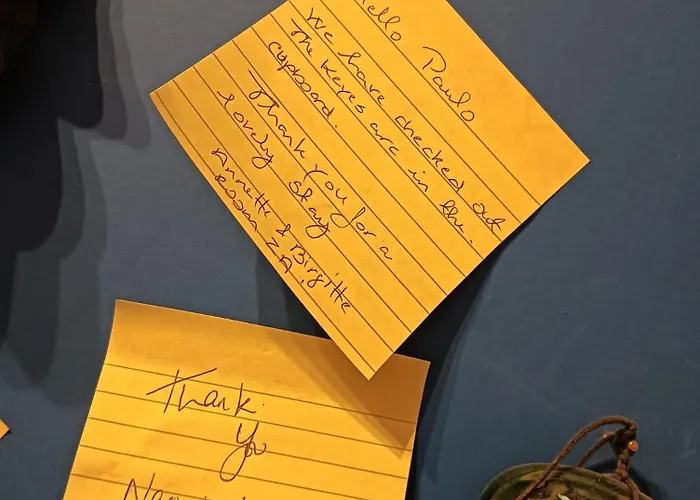 Hello Paulo
We have checked out
The keyes are in the
cupboard.
Thank you for a
lovely stay
Annette & Birgitte
room 2A.
Thank
You